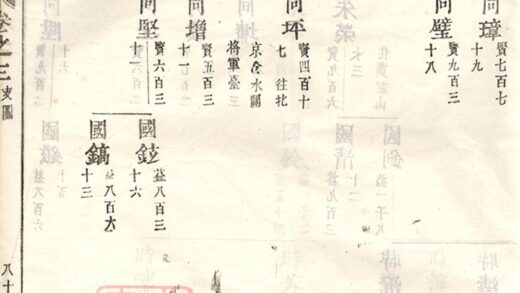 同璋
賢七百七
十九
同璧
賢九百三
十八
同坪
賢四百十
七 往北
京含水關
將軍臺三
同增
賢五百三
十一
同堅
賢六百三
十二
國鉉
益八百三
十六
國鎬
益八百六
十三
卷之三 支圖
八十